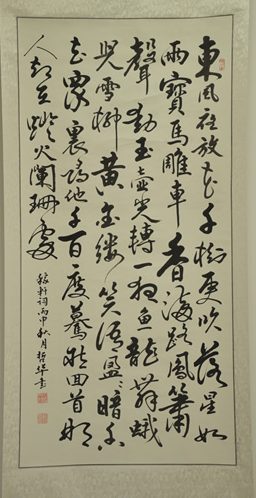 東風夜放花千樹更吹落星如
雨寶馬雕車香滿路鳳簫
聲動玉壺光轉一夜魚龍舞蛾
兒雪柳黃金縷笑語盈々暗香
去眾裏尋他千百度驀然回首那
人却在燈火闌珊處
稼軒詞丙申秋月哲華書